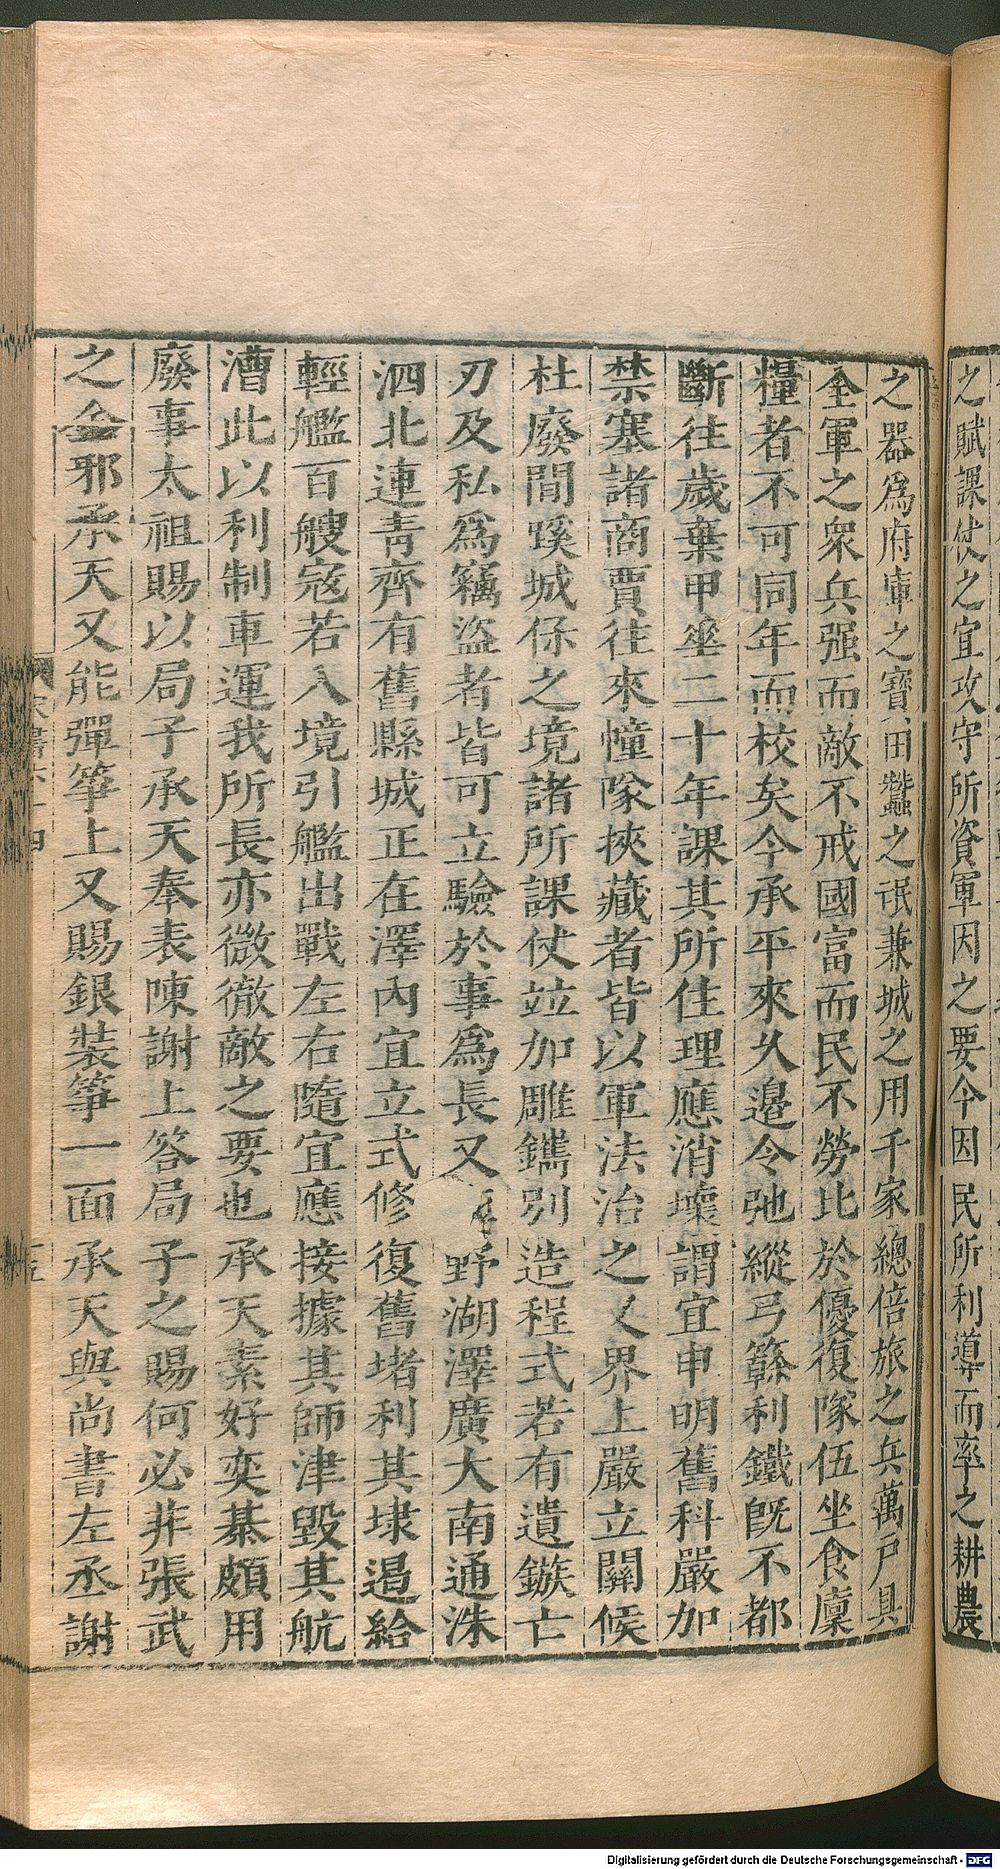 之賦課仗之宜攻守所資軍因之要今因民所利導而率之耕農
之器爲府庫之寶田蠶之氓兼城之用千家總倍旅之兵萬戸具
全軍之衆兵强而敵不戒國富而民不勞比於優復隊伍坐食廩
糧者不可同年而校矣今承平來乆邉令弛縱弓簳利鐵旣不都
斷往歲棄甲垂二十年課其所住理應消壞謂宜申明舊科嚴加
禁塞諸商賈往來幢隊挾藏者皆以軍法治之又界上嚴立關候
杜廢間蹊城保之境諸所課仗竝加雕鐫别造程式若有遺鏃亡
刃及私爲竊盜者皆可立驗於事爲長又野湖澤廣大南通洙
泗北連靑齊有舊縣城正在澤內宜立式修復舊堵利其埭遏給
輕艦百艘宼若入境引艦出戰左右隨宜應接據其師津毀其航
漕此以利制車運我所長亦微徹敵之要也承天素好奕棊頗用
廢事太祖賜以局子承天奉表陳謝上答局子之賜何必非張武
之金邪承天又能彈箏上又賜銀裝箏一面承天與尚書左丞謝
Digitalisierung gefördert durch die Deutsche Forschungsgemeinschaft - DFG